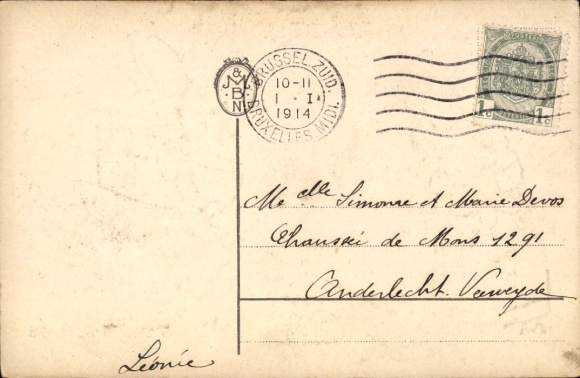 M & B N
BRUSSEL-ZUID.
10-11
1 · I
1914
BRUXELLES-MIDI.
1c 1c
Melle Simonne et Marie Devos
Chaussée de Mons 1291
Anderlecht. Veeweyde
Léonie